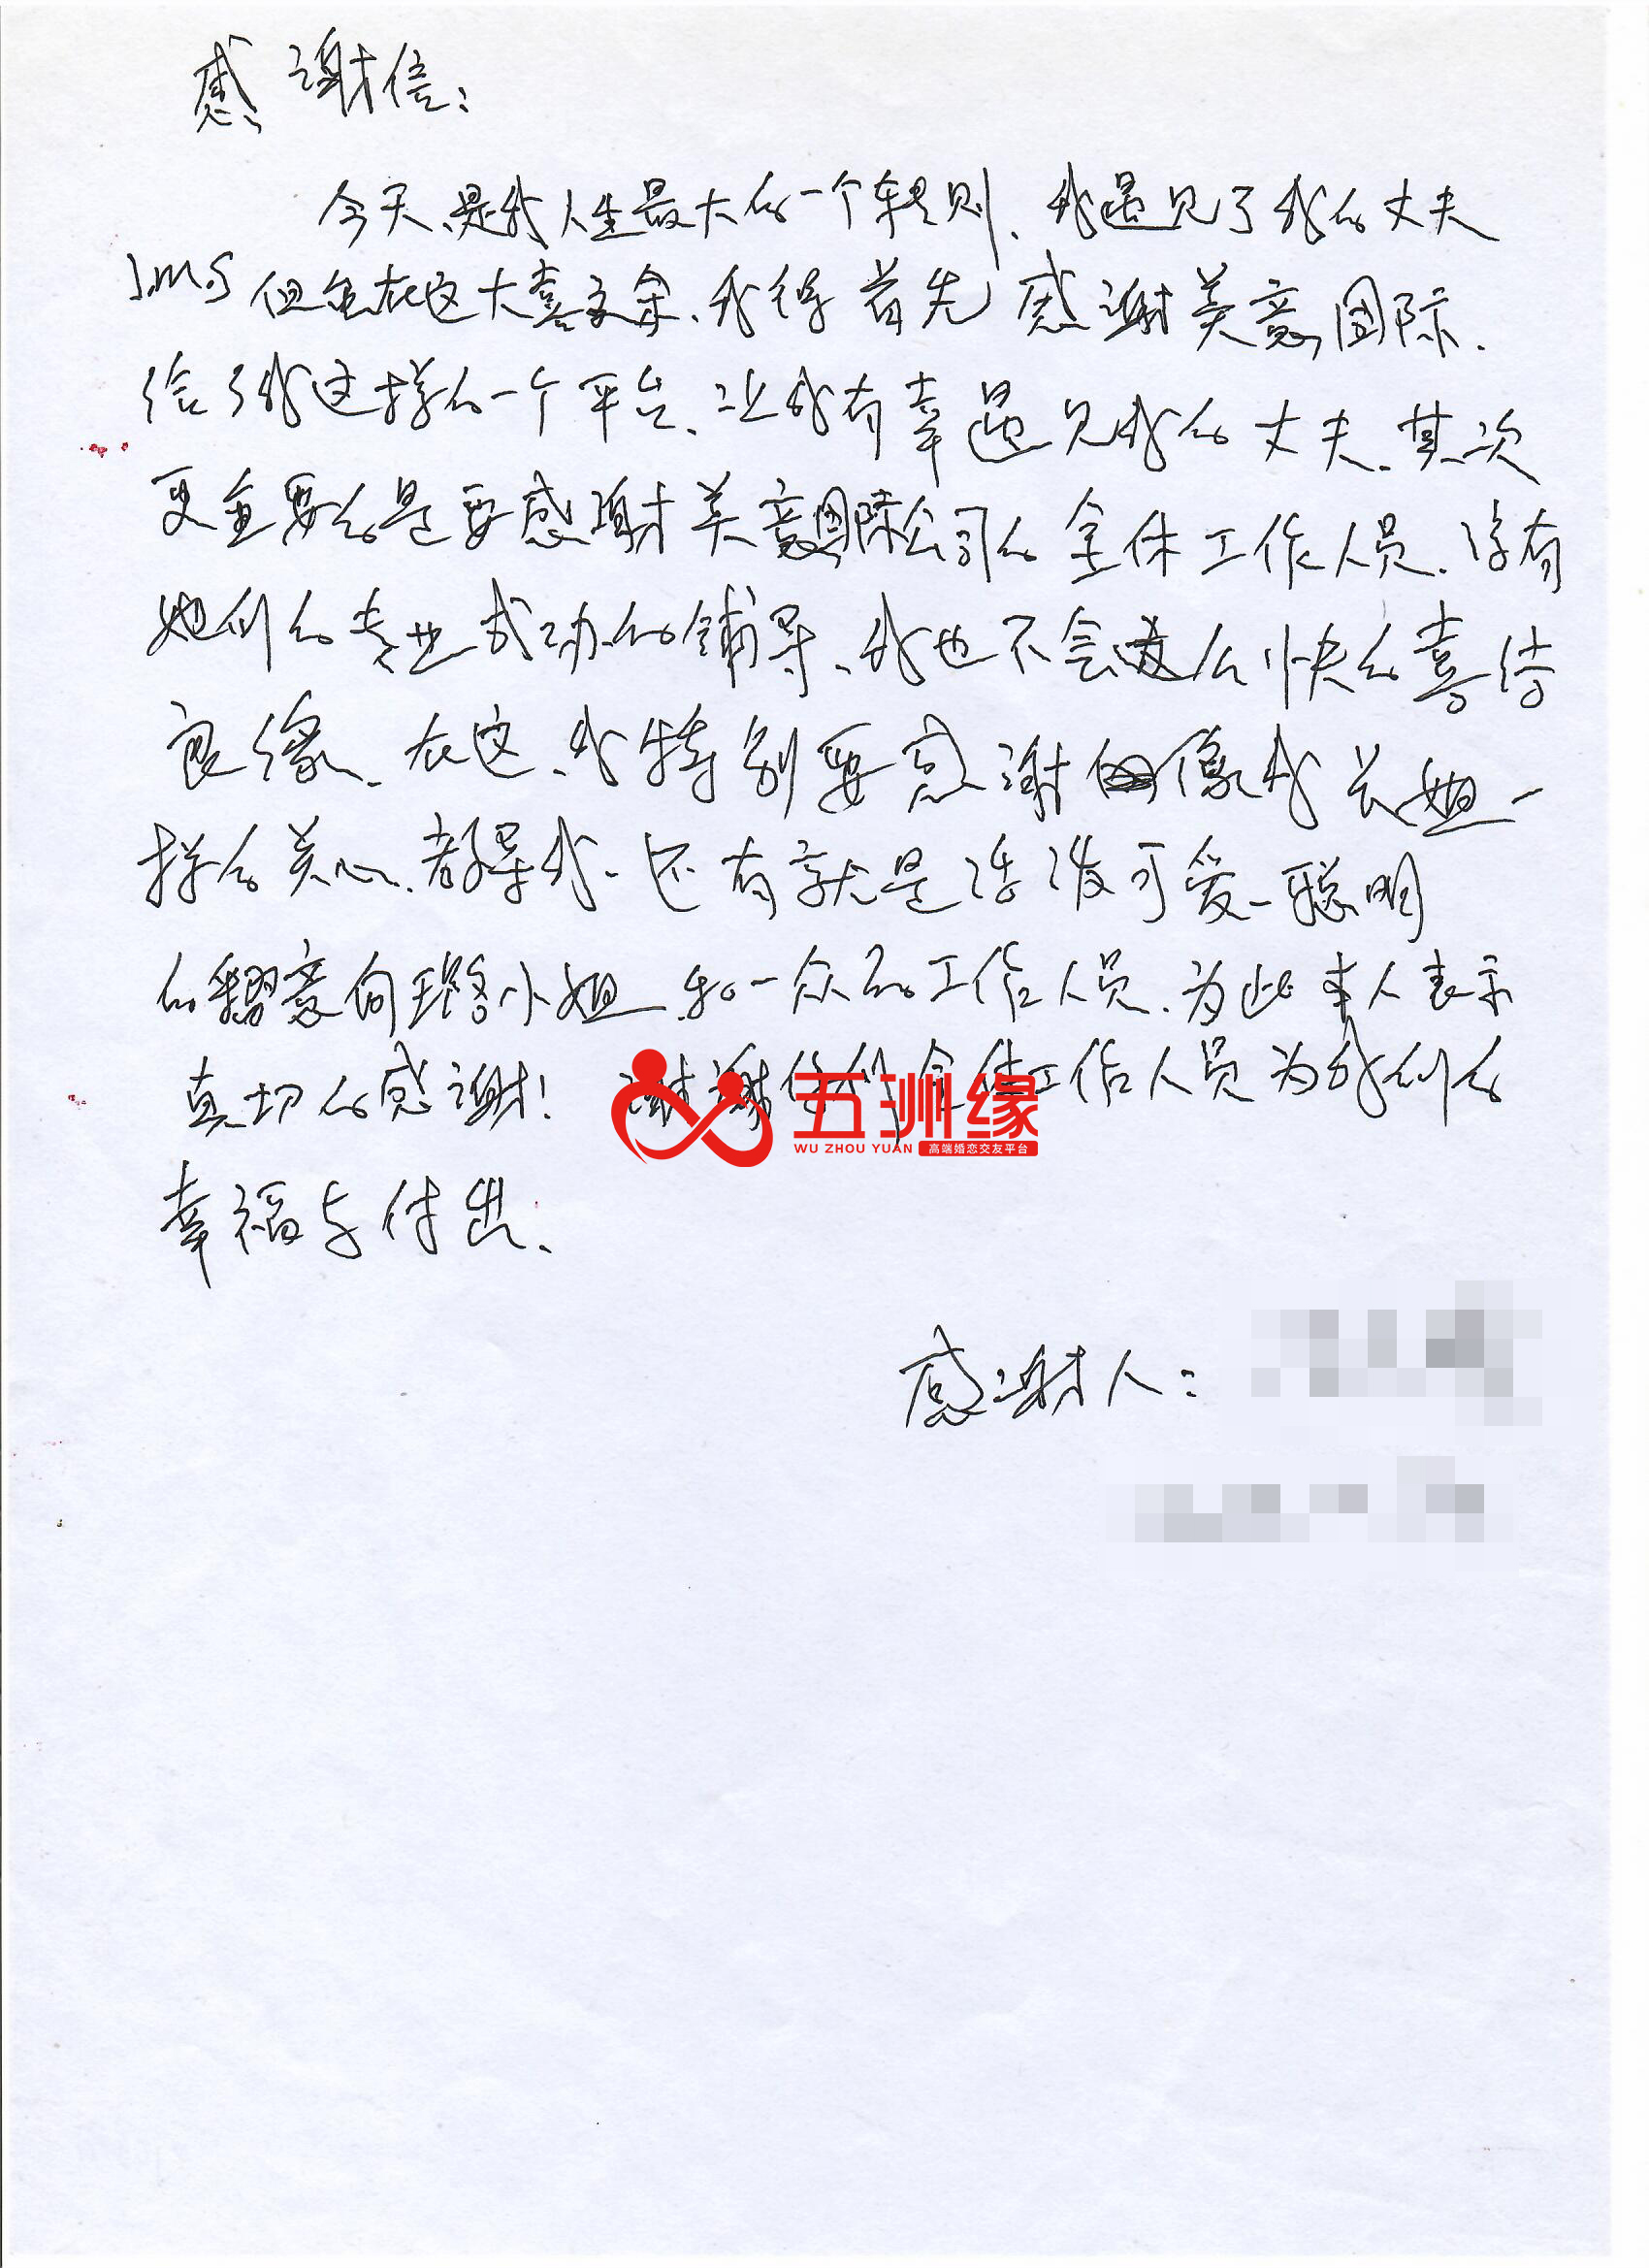 感谢信：
今天、是我人生最大的一个转则、我遇见了我的丈夫
JMS 但是在这大喜之余、我得首先感谢美意国际.
给了我这样的一个平台、让我有幸遇见我的丈夫、其次
更重要的是要感谢美意国际公司的全体工作人员、没有
她们的专业成功的铺导、我也不会这么快的喜结
良缘、在这、我特别要感谢像我长姐一
样的关心、督导我、还有就是活泼可爱、聪明
的 小姐、和一众的工作人员、为此本人表示
真切的感谢！ 谢谢你们全体工作人员为我们的
五洲缘
WU ZHOU YUAN 高端婚恋交友平台
幸福与付出、
感谢人：